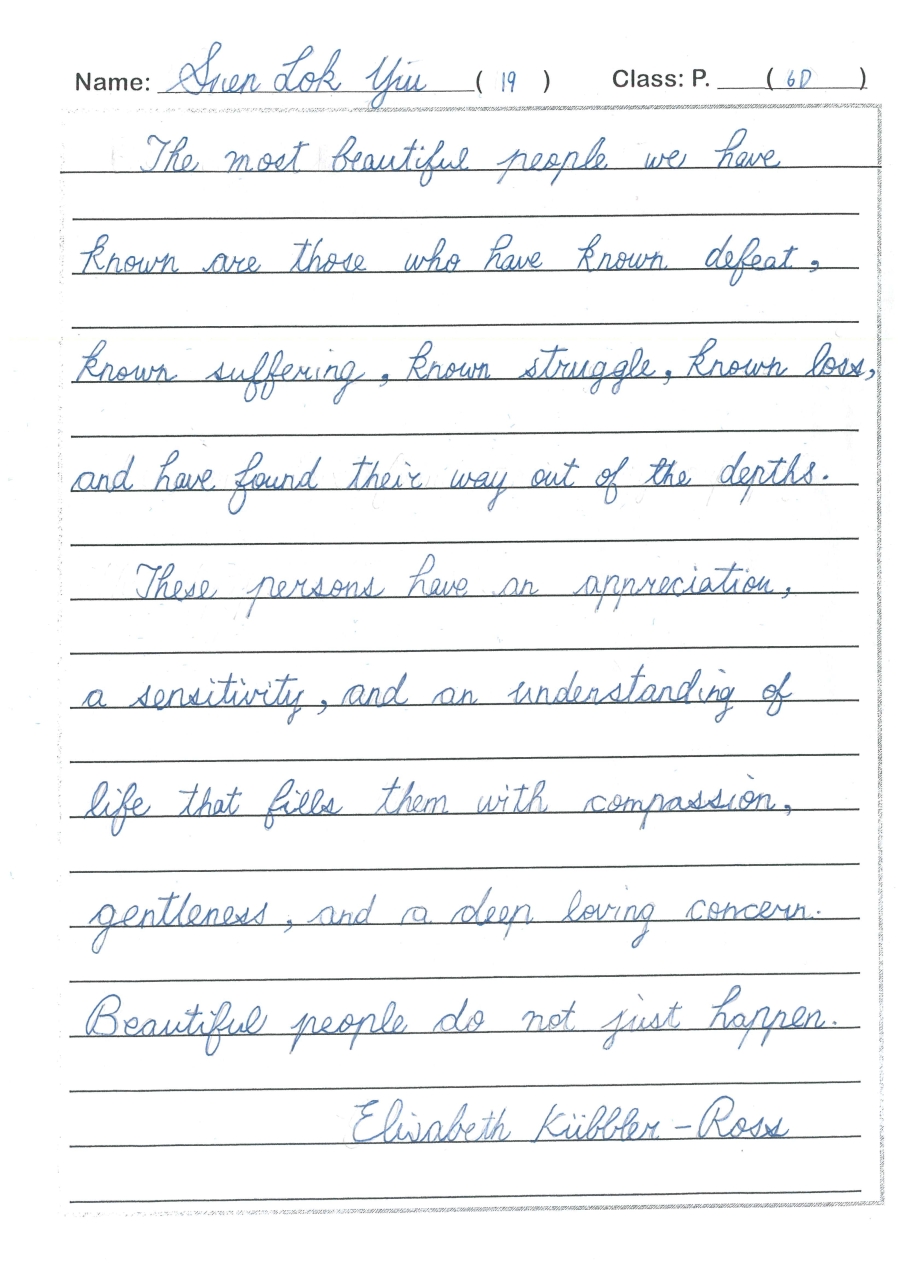 Name: Suen Lok Yiu ( 19 ) Class: P. ( 6D )
The most beautiful people we have
known are those who have known defeat,
known suffering, known struggle, known loss,
and have found their way out of the depths.
These persons have an appreciation,
a sensitivity, and an understanding of
life that fills them with compassion,
gentleness, and a deep loving concern.
Beautiful people do not just happen.
Elisabeth Kübbler-Ross